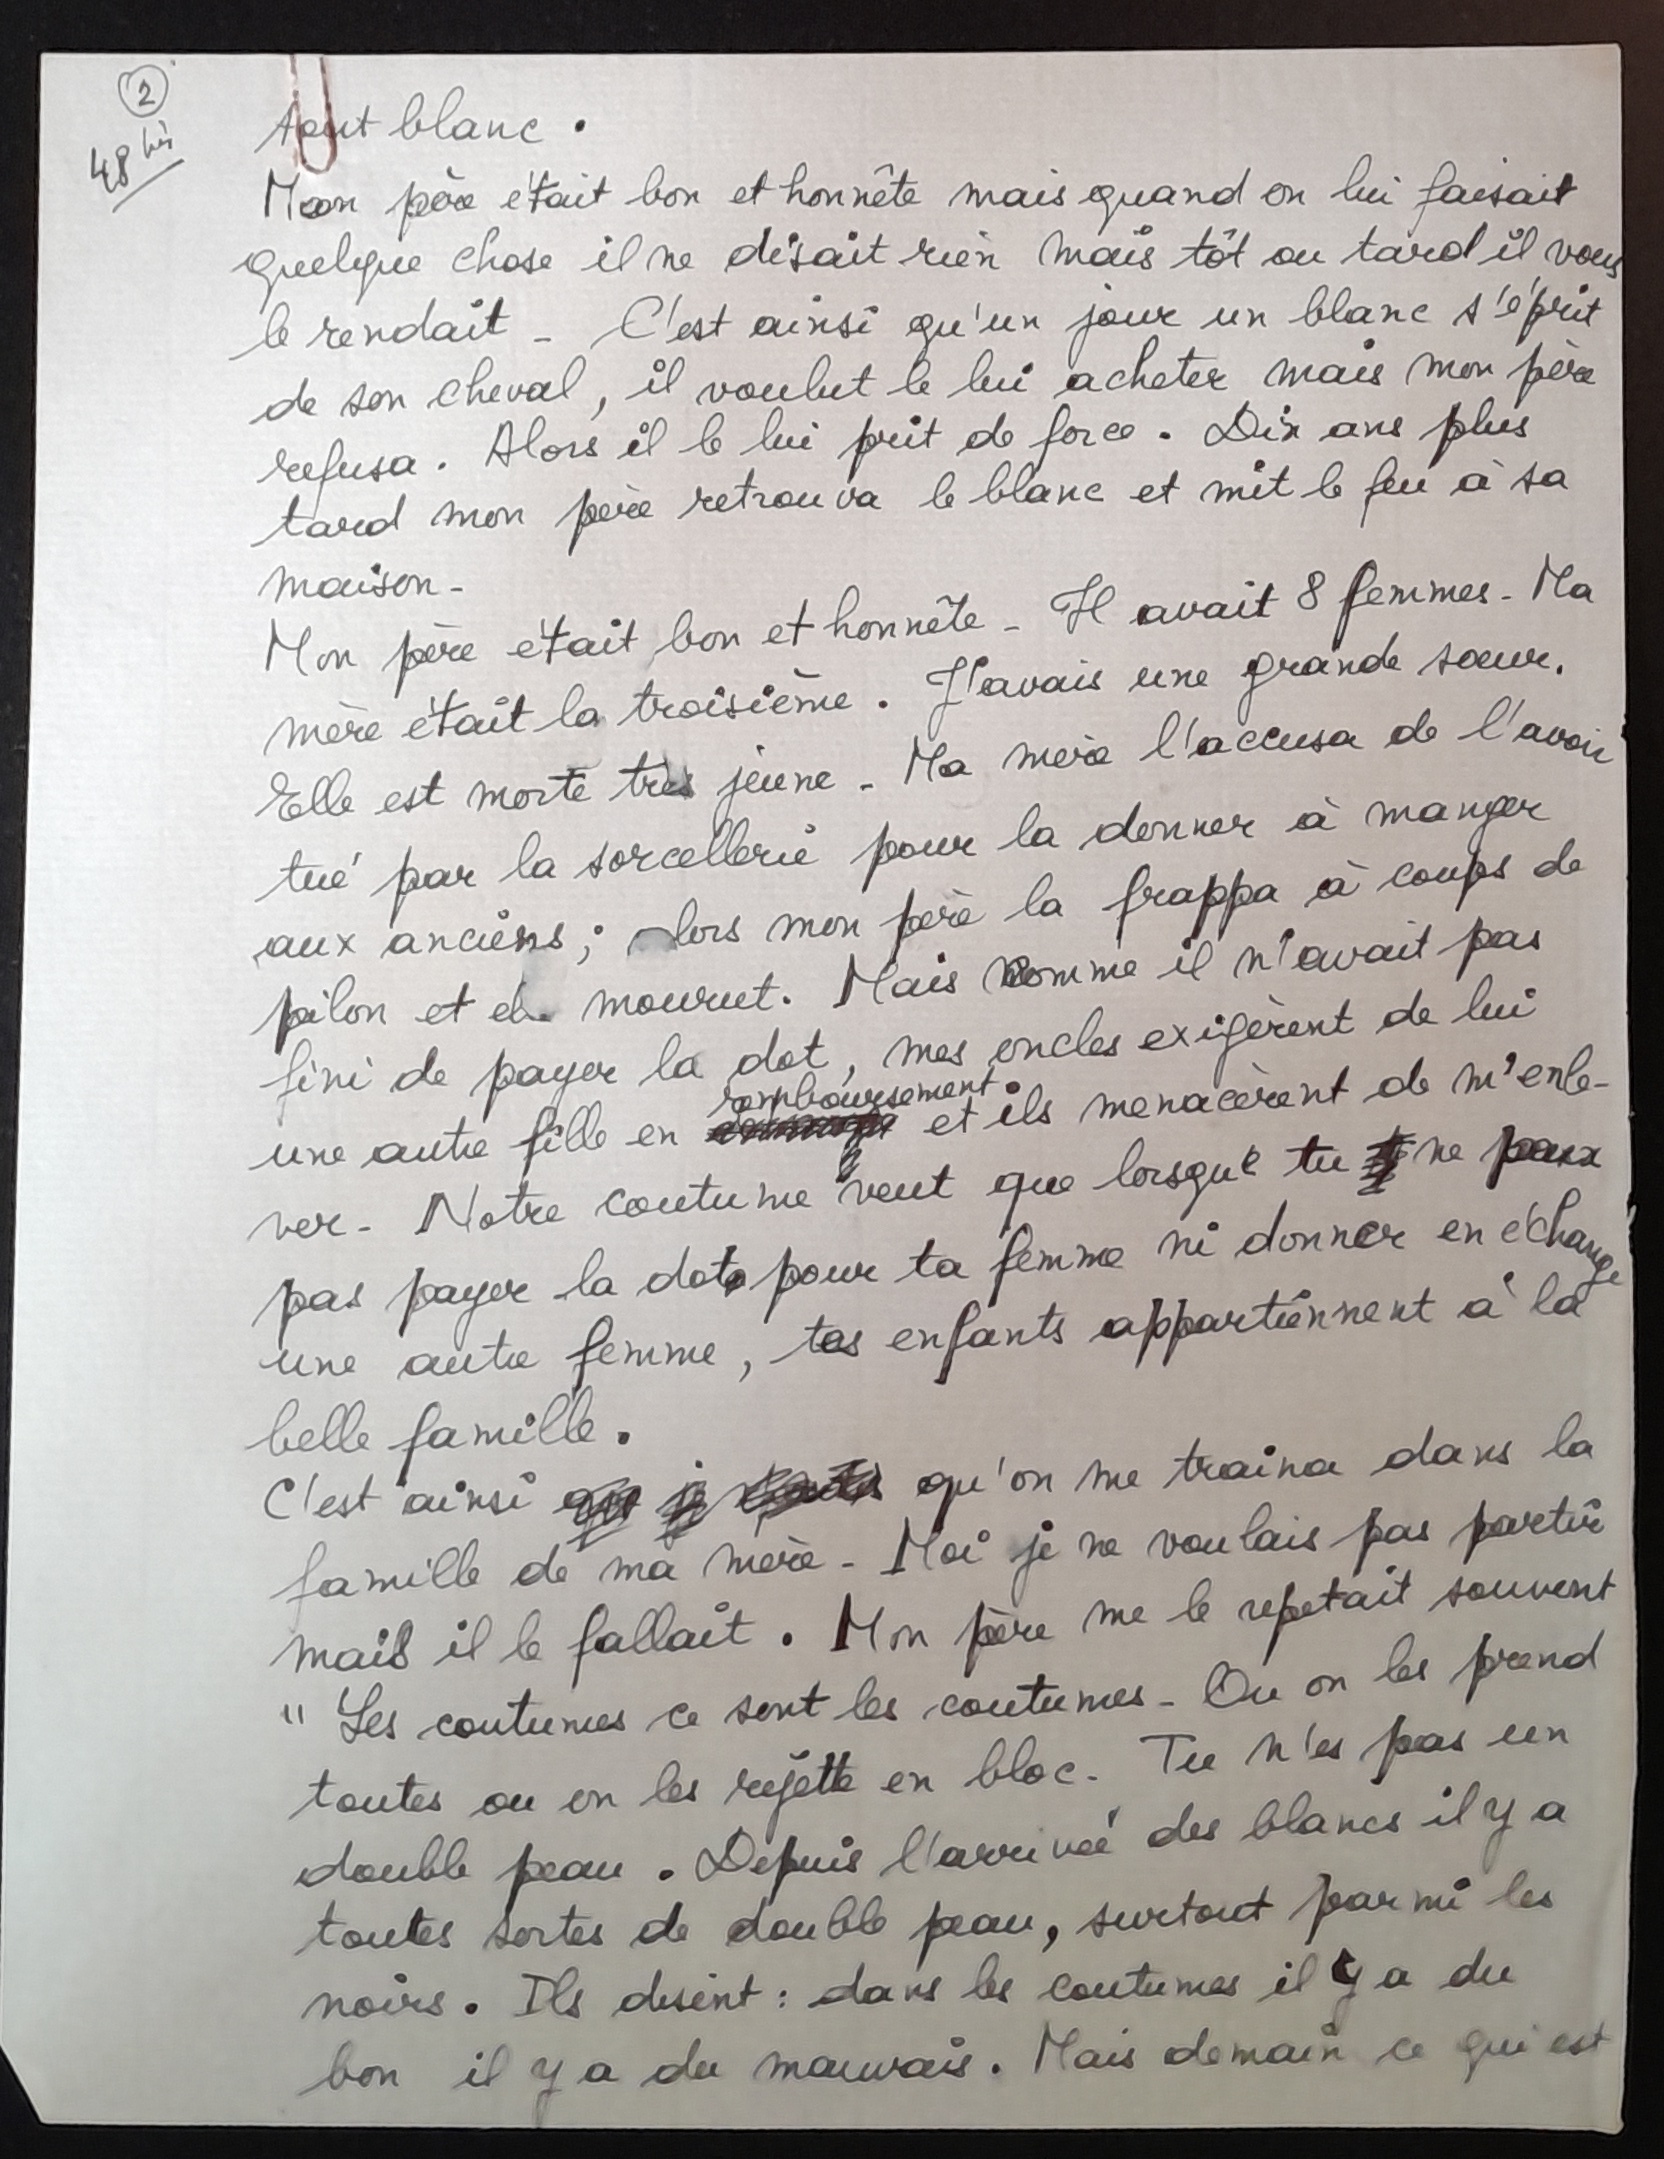 2
48 bis
tout blanc.
Mon père était bon et honnête mais quand on lui faisait
quelque chose il ne disait rien mais tôt ou tard il vous
le rendait - C'est ainsi qu'un jour un blanc s'éprit
de son cheval, il voulut le lui acheter mais mon père
refusa. Alors il le lui prit de force. Dix ans plus
tard mon père retrouva le blanc et mit le feu à sa
maison -
Mon père était bon et honnête - Il avait 8 femmes - Ma
mère était la troisième. J'avais une grande sœur.
Elle est morte très jeune - Ma mère l'accusa de l'avoir
tué par la sorcellerie pour la donner à manger
aux anciens; alors mon père la frappa à coups de
pilon et elle mourut. Mais comme il n'avait pas
fini de payer la dot, mes oncles exigèrent de lui
une autre fille en remboursement. et ils menacèrent de m'enle-
ver - Notre coutume veut que lorsque tu ne peux
pas payer la dot pour ta femme ni donner en échange
une autre femme, tes enfants appartiennent à la
belle famille.
C'est ainsi qu'on me traina dans la
famille de ma mère - Moi je ne voulais pas partir
mais il le fallait. Mon père me le repetait souvent
" Les coutumes ce sont les coutumes - Ou on les prend
toutes ou on les rejette en bloc - Tu n'es pas un
double peau. Depuis l'arrivée des blancs il y a
toutes sortes de double peau, surtout parmi les
noirs. Ils disent : dans les coutumes il y a du
bon il y a du mauvais. Mais demain ce qui est